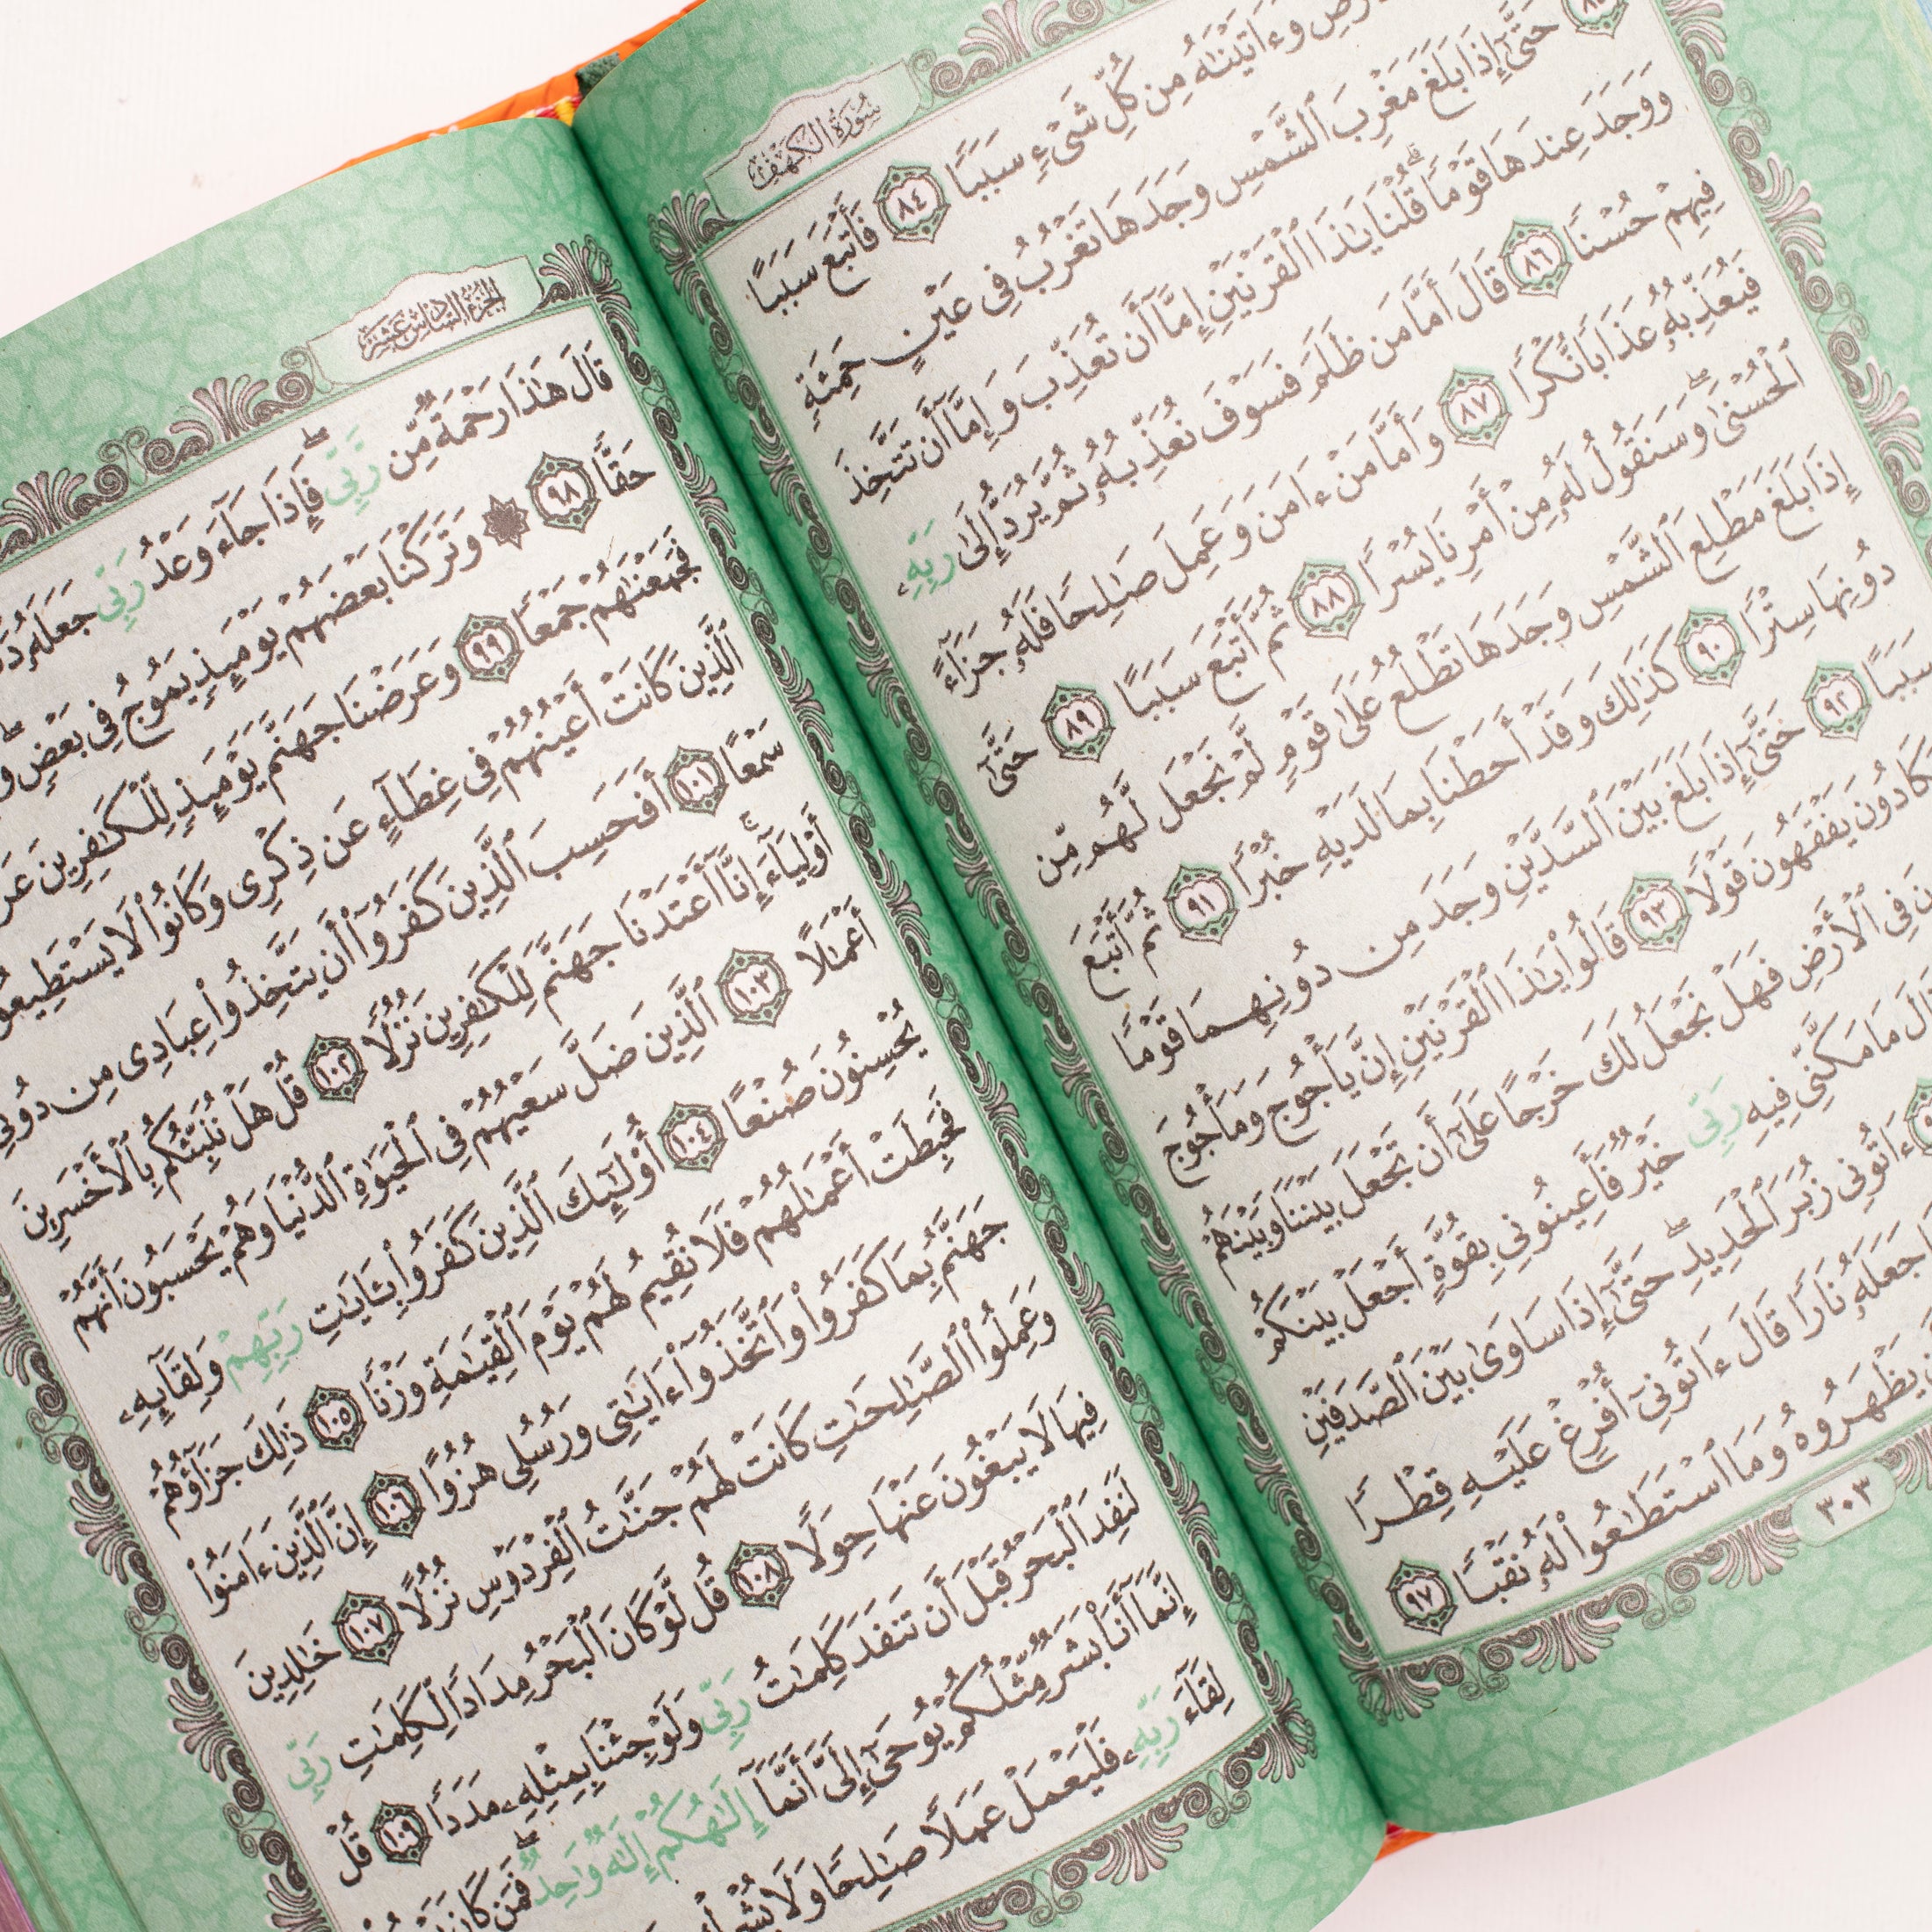 سُورَةُ الكَهْفِ
وَءَاتَيْنَٰهُ مِن كُلِّ شَىْءٍ سَبَبًا ٨٤ فَأَتْبَعَ سَبَبًا
حَتَّىٰٓ إِذَا بَلَغَ مَغْرِبَ ٱلشَّمْسِ وَجَدَهَا تَغْرُبُ فِى عَيْنٍ حَمِئَةٍ
وَوَجَدَ عِندَهَا قَوْمًا ۗ قُلْنَا يَٰذَا ٱلْقَرْنَيْنِ إِمَّآ أَن تُعَذِّبَ وَإِمَّآ أَن تَتَّخِذَ
فِيهِمْ حُسْنًا ٨٦ قَالَ أَمَّا مَن ظَلَمَ فَسَوْفَ نُعَذِّبُهُۥ ثُمَّ يُرَدُّ إِلَىٰ رَبِّهِۦ
فَيُعَذِّبُهُۥ عَذَابًا نُّكْرًا ٨٧ وَأَمَّا مَنْ ءَامَنَ وَعَمِلَ صَٰلِحًا فَلَهُۥ جَزَآءً
ٱلْحُسْنَىٰ ۖ وَسَنَقُولُ لَهُۥ مِنْ أَمْرِنَا يُسْرًا ٨٨ ثُمَّ أَتْبَعَ سَبَبًا ٨٩ حَتَّىٰٓ
إِذَا بَلَغَ مَطْلِعَ ٱلشَّمْسِ وَجَدَهَا تَطْلُعُ عَلَىٰ قَوْمٍ لَّمْ نَجْعَل لَّهُم مِّن
دُونِهَا سِتْرًا ٩٠ كَذَٰلِكَ وَقَدْ أَحَطْنَا بِمَا لَدَيْهِ خُبْرًا ٩١ ثُمَّ أَتْبَعَ
سَبَبًا ٩٢ حَتَّىٰٓ إِذَا بَلَغَ بَيْنَ ٱلسَّدَّيْنِ وَجَدَ مِن دُونِهِمَا قَوْمًا
يَكَادُونَ يَفْقَهُونَ قَوْلًا ٩٣ قَالُوا۟ يَٰذَا ٱلْقَرْنَيْنِ إِنَّ يَأْجُوجَ وَمَأْجُوجَ
فِى ٱلْأَرْضِ فَهَلْ نَجْعَلُ لَكَ خَرْجًا عَلَىٰٓ أَن تَجْعَلَ بَيْنَنَا وَبَيْنَهُمْ
قَالَ مَا مَكَّنِّى فِيهِ رَبِّى خَيْرٌ فَأَعِينُونِى بِقُوَّةٍ أَجْعَلْ بَيْنَكُمْ
ءَاتُونِى زُبَرَ ٱلْحَدِيدِ ۖ حَتَّىٰٓ إِذَا سَاوَىٰ بَيْنَ ٱلصَّدَفَيْنِ
جَعَلَهُۥ نَارًا قَالَ ءَاتُونِىٓ أُفْرِغْ عَلَيْهِ قِطْرًا
يَظْهَرُوهُ وَمَا ٱسْتَطَٰعُوا۟ لَهُۥ نَقْبًا ٩٧
٣٠٣
الجزء السادس عشر
قَالَ هَٰذَا رَحْمَةٌ مِّن رَّبِّى ۖ فَإِذَا جَآءَ وَعْدُ رَبِّى جَعَلَهُۥ
حَقًّا ٩٨ ۞ وَتَرَكْنَا بَعْضَهُمْ يَوْمَئِذٍ يَمُوجُ فِى بَعْضٍ ۖ
فَجَمَعْنَٰهُمْ جَمْعًا ٩٩ وَعَرَضْنَا جَهَنَّمَ يَوْمَئِذٍ لِّلْكَٰفِرِينَ
ٱلَّذِينَ كَانَتْ أَعْيُنُهُمْ فِى غِطَآءٍ عَن ذِكْرِى وَكَانُوا۟ لَا يَسْتَطِيعُونَ
سَمْعًا ١٠١ أَفَحَسِبَ ٱلَّذِينَ كَفَرُوٓا۟ أَن يَتَّخِذُوا۟ عِبَادِى مِن دُونِىٓ
أَوْلِيَآءَ ۚ إِنَّآ أَعْتَدْنَا جَهَنَّمَ لِلْكَٰفِرِينَ نُزُلًا ١٠٢ قُلْ هَلْ نُنَبِّئُكُم بِٱلْأَخْسَرِينَ
أَعْمَٰلًا ١٠٣ ٱلَّذِينَ ضَلَّ سَعْيُهُمْ فِى ٱلْحَيَوٰةِ ٱلدُّنْيَا وَهُمْ يَحْسَبُونَ أَنَّهُمْ
يُحْسِنُونَ صُنْعًا ١٠٤ أُو۟لَٰٓئِكَ ٱلَّذِينَ كَفَرُوا۟ بِـَٔايَٰتِ رَبِّهِمْ وَلِقَآئِهِۦ
فَحَبِطَتْ أَعْمَٰلُهُمْ فَلَا نُقِيمُ لَهُمْ يَوْمَ ٱلْقِيَٰمَةِ وَزْنًا ١٠٥ ذَٰلِكَ جَزَآؤُهُمْ
جَهَنَّمُ بِمَا كَفَرُوا۟ وَٱتَّخَذُوٓا۟ ءَايَٰتِى وَرُسُلِى هُزُوًا ١٠٦ إِنَّ ٱلَّذِينَ ءَامَنُوا۟
وَعَمِلُوا۟ ٱلصَّٰلِحَٰتِ كَانَتْ لَهُمْ جَنَّٰتُ ٱلْفِرْدَوْسِ نُزُلًا ١٠٧ خَٰلِدِينَ
فِيهَا لَا يَبْغُونَ عَنْهَا حِوَلًا ١٠٨ قُل لَّوْ كَانَ ٱلْبَحْرُ مِدَادًا لِّكَلِمَٰتِ رَبِّى
لَنَفِدَ ٱلْبَحْرُ قَبْلَ أَن تَنفَدَ كَلِمَٰتُ رَبِّى وَلَوْ جِئْنَا بِمِثْلِهِۦ مَدَدًا ١٠٩ قُلْ
إِنَّمَآ أَنَا۠ بَشَرٌ مِّثْلُكُمْ يُوحَىٰٓ إِلَىَّ أَنَّمَآ إِلَٰهُكُمْ إِلَٰهٌ وَٰحِدٌ ۖ فَمَن كَانَ
لِقَآءَ رَبِّهِۦ فَلْيَعْمَلْ عَمَلًا صَٰلِحًا وَلَا